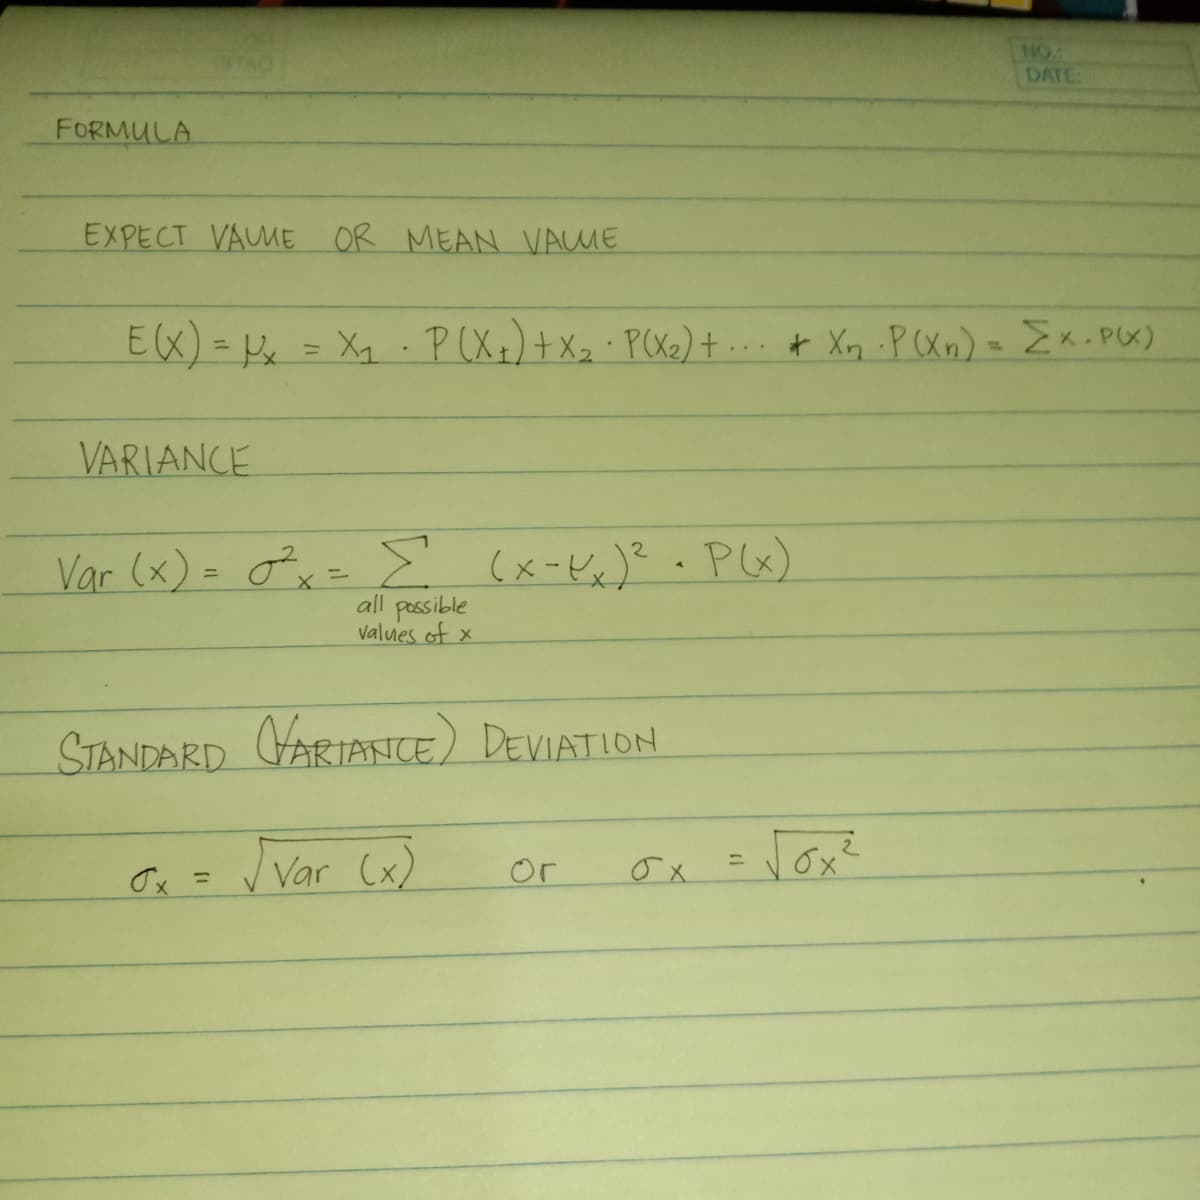 NO.:
DATE:
FORMULA
EXPECT VALUE OR MEAN VALUE
E(X) = μx = X1 · P(X1) + X2 · P(X2) + ... + Xn · P(Xn) = Σx · P(X)
VARIANCE
Var (x) = σ²x = Σ (x-μx)² · P(x)
all possible
values of x
STANDARD (VARIANCE) DEVIATION
σx = √Var (x) or σx = √σx²